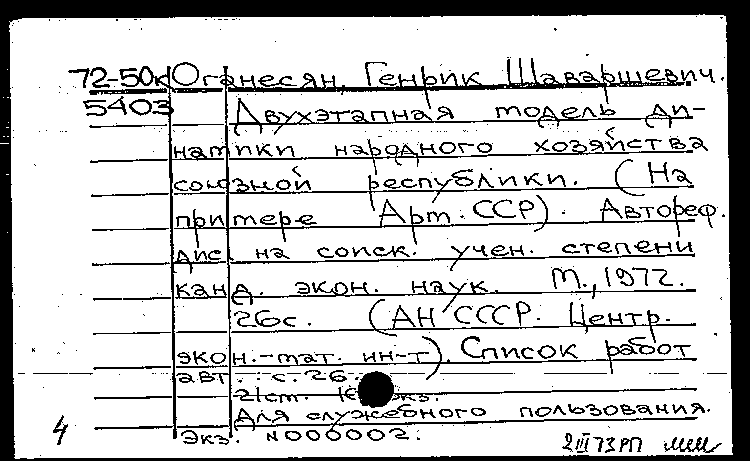 72-50к Оганесян, Генрик Шаваршевич.
5403 Двухэтапная модель ди-
намики народного хозяйства
союзной республики. (На
примере Арм. ССР). Автореф.
дис. на соиск. учен. степени
канд. экон. наук. М., 1972.
26с. (АН СССР. Центр.
экон.-мат. ин-т). Список работ
авт.: с. 26.
21см. экз.
Для служебного пользования.
4 Экз. N000002.
2 III 73 РП